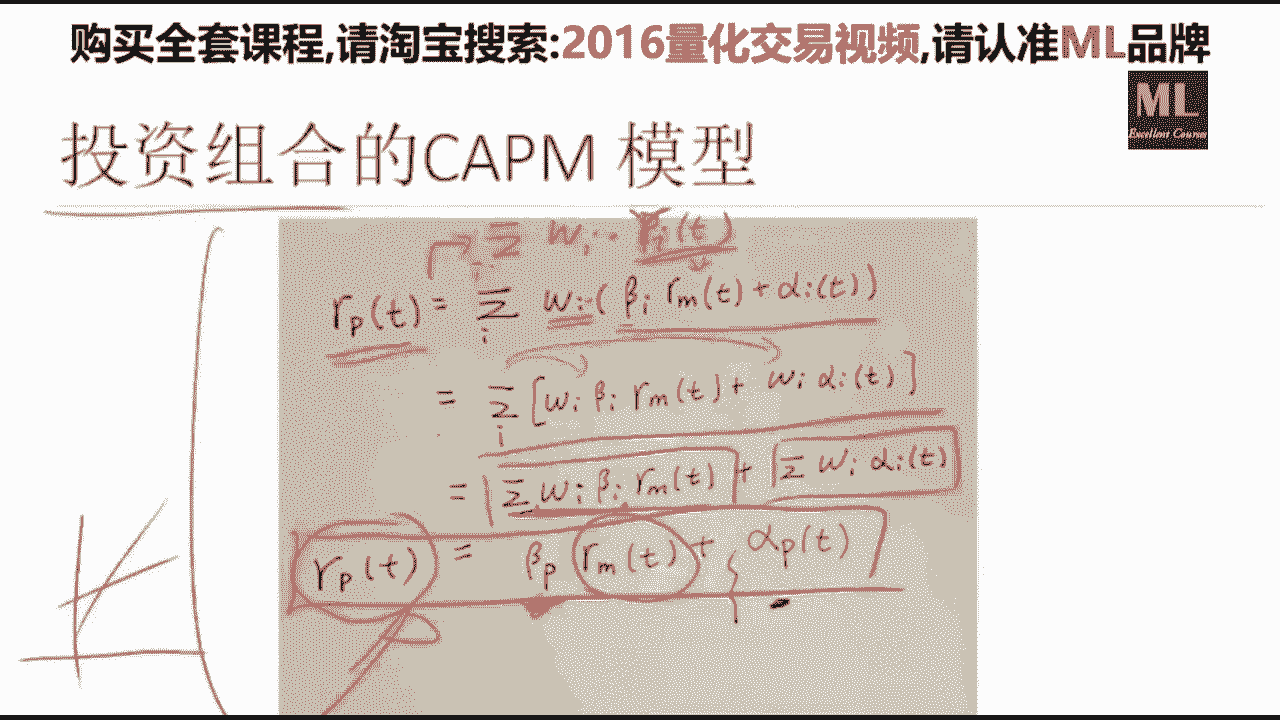 购买全套课程,请淘宝搜索:2016量化交易视频,请认准ML品牌
ML
Excellent Course
投资组合的CAPM 模型
Σ wᵢ · rᵢ(t)
rₚ(t) = Σᵢ wᵢ (βᵢ rₘ(t) + αᵢ(t))
= Σᵢ [wᵢ βᵢ rₘ(t) + wᵢ αᵢ(t)]
= Σ wᵢ βᵢ rₘ(t) + Σ wᵢ αᵢ(t)
rₚ(t) = βₚ rₘ(t) + αₚ(t)